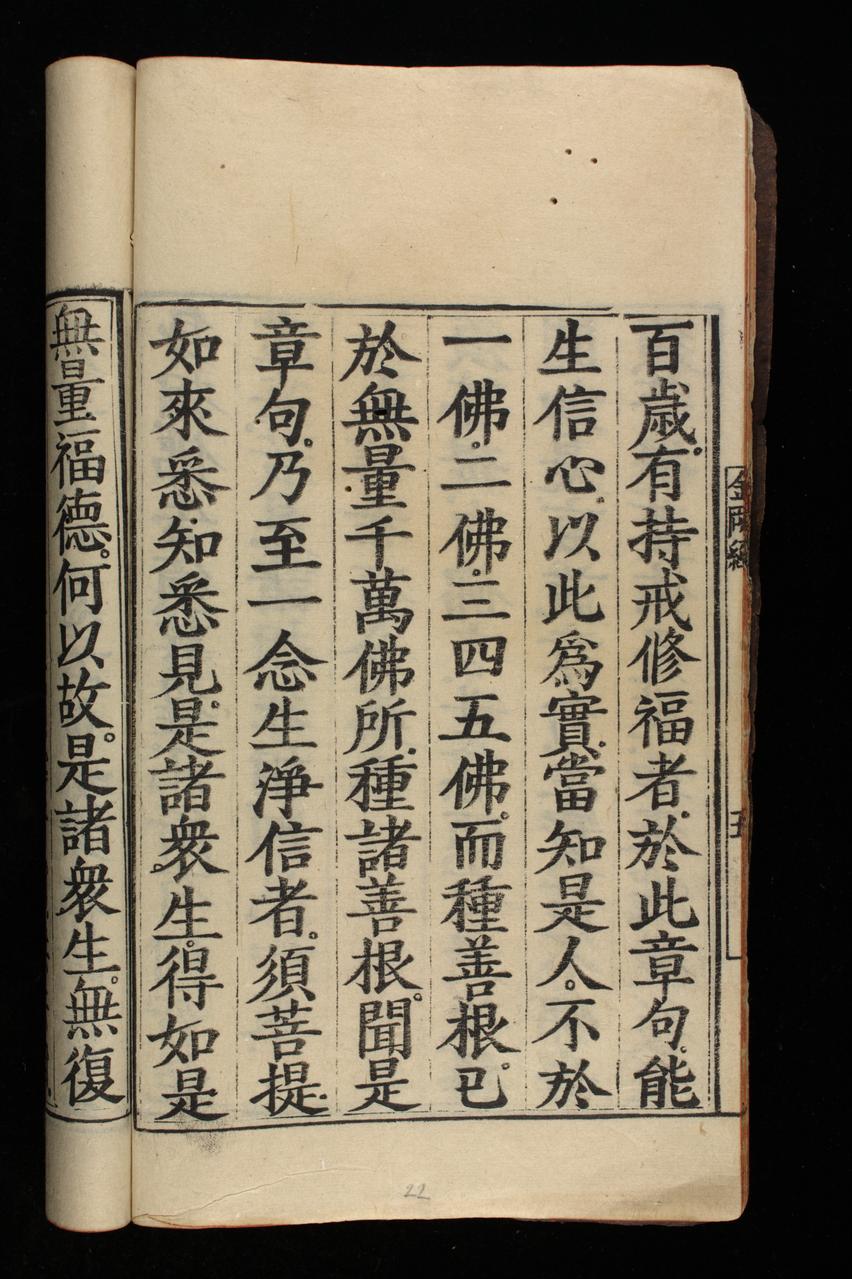 百歲。有持戒修福者。於此章句。能
生信心。以此爲實。當知是人。不於
一佛。二佛。三四五佛。而種善根。已
於無量千萬佛所。種諸善根。聞是
章句。乃至一念生淨信者。須菩提。
如來悉知悉見。是諸衆生。得如是
無量福德。何以故。是諸衆生。無復
金剛經
五
22